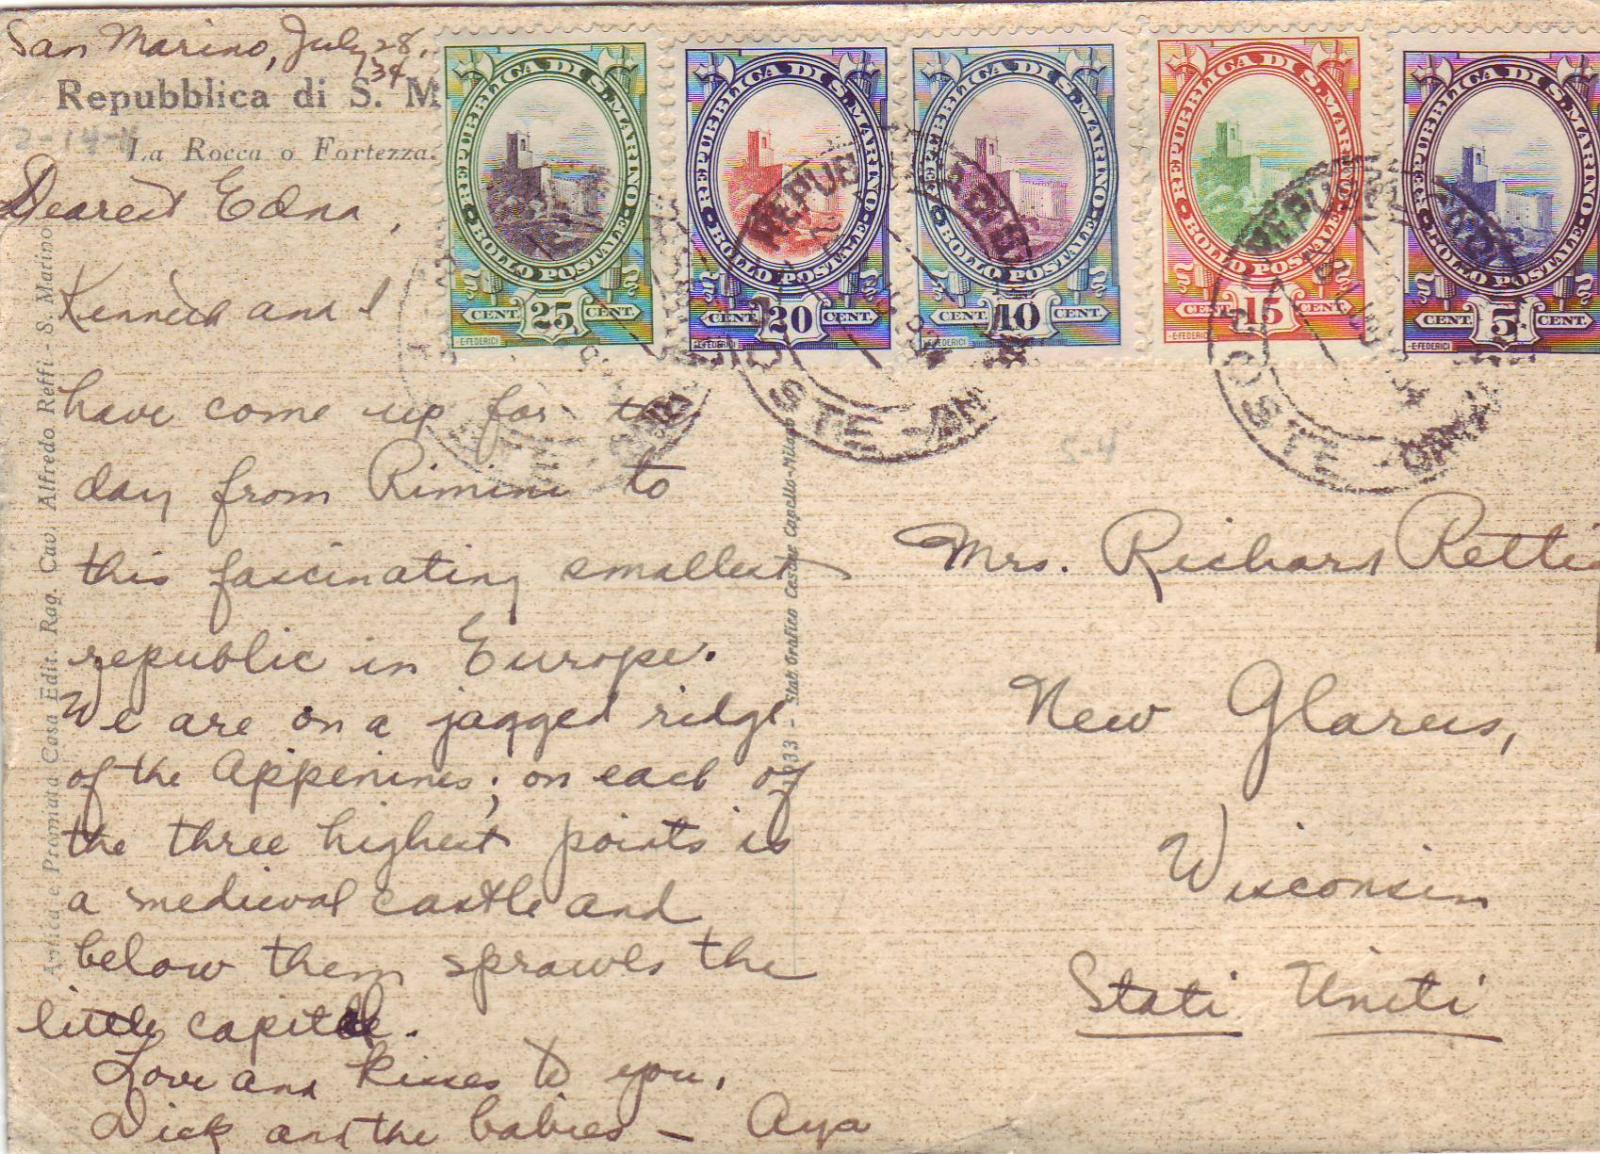 San Marino, July 28,
34
Repubblica di S. M
La Rocca o Fortezza.
2-14-4
Dearest Edna,
Kenneth and I
have come up for the
day from Rimini to
this fascinating smallest
republic in Europe.
We are on a jagged ridge
of the Appenines; on each of
the three highest points is
a medieval castle and
below them sprawls the
little capital.
Love and kisses to you,
Dick and the babies — Aya
Antica e Premiata Casa Edit. Rag. Cav. Alfredo Reffi - S. Marino
1933 - Stab Grafico Cesare Capello-Milano
REPUBBLICA DI S. MARINO
BOLLO POSTALE
CENT. 25 CENT.
E·FEDERICI
REPUBBLICA DI S. MARINO
BOLLO POSTALE
CENT. 20 CENT.
E·FEDERICI
REPUBBLICA DI S. MARINO
BOLLO POSTALE
CENT. 10 CENT.
E·FEDERICI
REPUBBLICA DI S. MARINO
BOLLO POSTALE
CENT. 15 CENT.
E·FEDERICI
REPUBBLICA DI S. MARINO
BOLLO POSTALE
CENT. 5 CENT.
E·FEDERICI
S-4
Mrs. Richard Retti
New Glarus,
Wisconsin
Stati Uniti